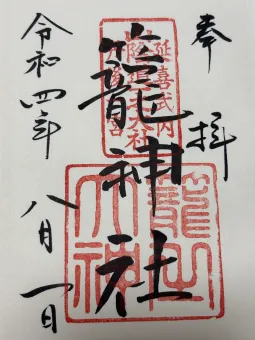 奉拝
延喜式内
籠神社
令和四年八月一日